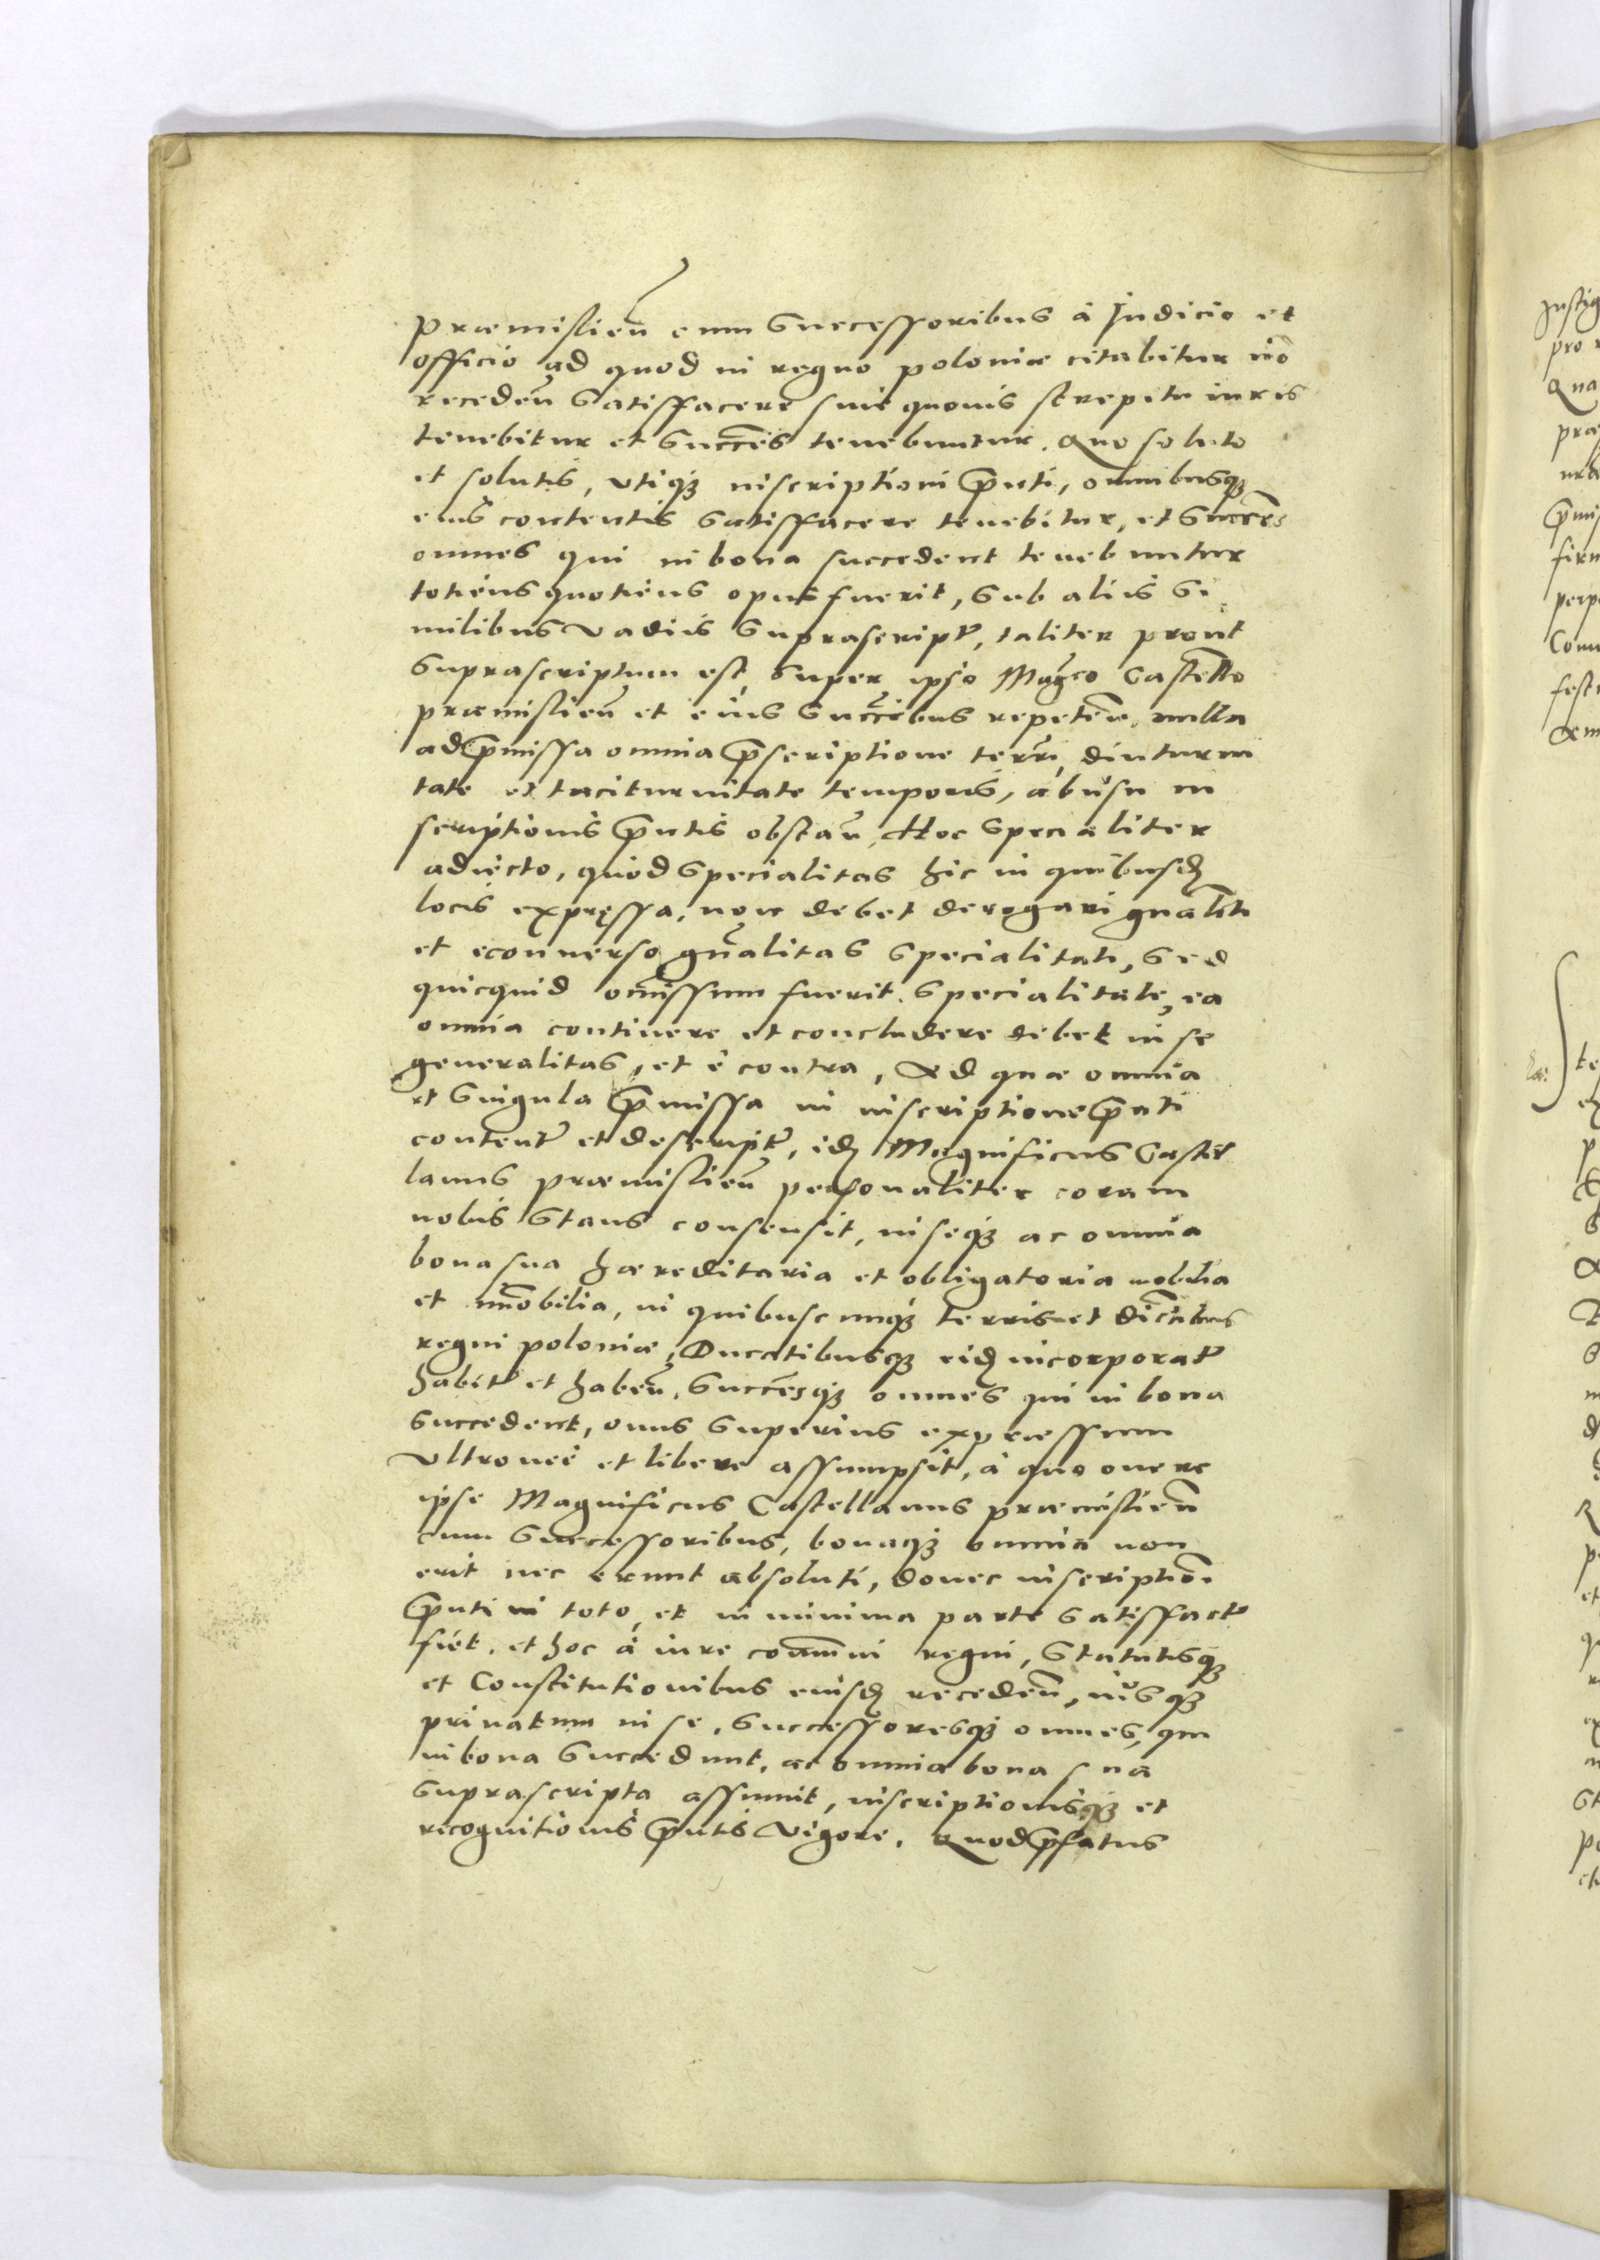 Præmislieñ cum Successoribus à Judicio et
officio ad quod in regno poloniæ citabitur nõ
recedeñ Satisfacere sine quovis strepitu iuris
tenebitur et Succẽs tenebuntur. Quo soluto
et solutis, vtiq3 inscriptioni p̃nti, omnibusq3
eius contentis satisfacere tenebitur, et Succẽs
omnes qui in bona succedent tenebuntur
totiens quotiens opus fuerit, Sub aliis Si,
milibus vadiis Suprascript̃, taliter prout
Suprascriptum est, Super ipso Mag̃co Castello
præmislieñ et eius Succc̃ibus repeteñ, nulla
ad p̃missa omnia p̃scriptione terr̃, diuturni
tate et taciturnitate temporis, abusu in
scriptionis p̃ntis obstañ, Hoc Specialiter
adiecto, quod Specialitas hic in quibusd
locis expressa, non debet derogari gñalit̃i
et econuerso gñalitas Specialitati, Sed
quicquid om̃issum fuerit Specialitate, ea
omnia continere et concludere debet in se
generalitas, et è contra, Ad quæ omnia
et Singula p̃missa in inscriptione p̃nti
content̃ et descript̃, id Magnificus Castel
lanus præmislieñ personaliter coram
nobis Stans consensit, in seq3 ac omnia
bona sua hæreditaria et obligatoria mobilia
et im̃obilia, in quibuscunq3 terris et dic̃tibus
regni poloniæ, Ducatibusq3 eid incorporat̃
habit̃ et habeñ, Succẽsq3 omnes qui in bona
Succedent, onus Superius expressum
Vltroneè et libere assumpsit, à quo onere
ipse Magnificus Castellanus præmislieñ
cum Successoribus, bonaq3 omnia non
erit nec erunt absoluti, donec inscriptioni
p̃nti in toto, et in minima parte Satisfact̃
fiet. et hoc à iure coam̃uni regni, Statutisq3
et Constitutionibus eiusd recedeñ, iusq3
priuatum in se, Successoresq3 omnes, qui
in bona Succedunt, ac omnia bona sua
Suprascripta assumit, inscriptionisq3 et
recognitionis p̃ntis Vigore. Quod p̃fatus